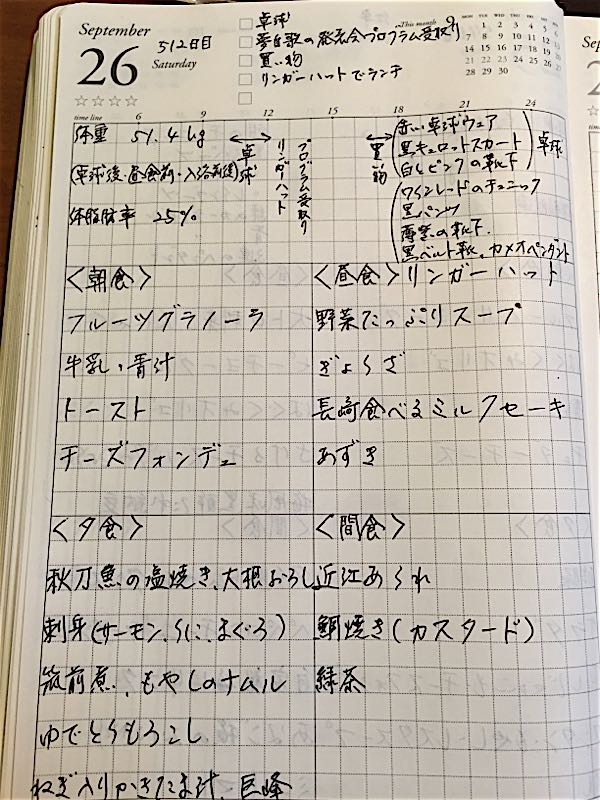 September
26
512日目
Saturday
☆☆☆☆
卓球
夢自歌の発表会プログラム受取り
買い物
リンガーハットでランチ
This month 9
MON TUE WED THU FRI SAT SUN
1 2 3 4 5 6
7 8 9 10 11 12 13
14 15 16 17 18 19 20
21 22 23 24 25 26 27
28 29 30
time line 6 9 12 15 18 21 24
体重 51.4kg
(卓球後・昼食前・入浴前後)
体脂肪率 25%
卓球
リンガーハット
プログラム受取り
買い物
赤い卓球ウェア
黒キュロットスカート
白&ピンクの靴下
卓球
ワインレッドのチュニック
黒パンツ
薄紫の靴下.
黒ベルト靴、カメオペンダント
<朝食>
フルーツグラノーラ
牛乳・青汁
トースト
チーズフォンデュ
<昼食>リンガーハット
野菜たっぷりスープ
ぎょうざ
長崎食べるミルクセーキ
あずき
<夕食>
秋刀魚の塩焼き、大根おろし
刺身(サーモン、うに、まぐろ)
筑前煮、もやしのナムル
ゆでとうもろこし
ねぎ入りかきたま汁、巨峰
<間食>
近江あられ
鯛焼き(カスタード)
緑茶